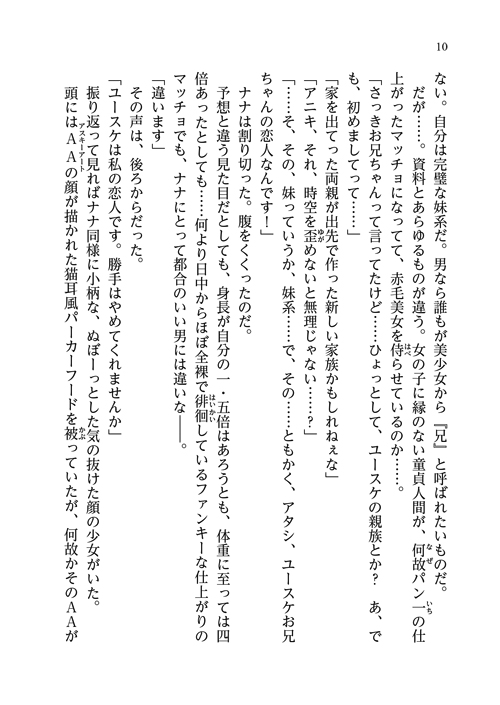 10
ない。自分は完璧な妹系だ。男なら誰もが美少女から『兄』と呼ばれたいものだ。
だが……。資料とあらゆるものが違う。女の子に縁のない童貞人間が、何故パン一の仕
上がったマッチョになってて、赤毛美女を侍らせているのか……。
「さっきお兄ちゃんって言ってたけど……ひょっとして、ユースケの親族とか？　あ、で
も、初めましてって……」
「家を出てった両親が出先で作った新しい家族かもしれねぇな」
「アニキ、それ、時空を歪めないと無理じゃない……？」
「……そ、その、妹っていうか、妹系……で、その……ともかく、アタシ、ユースケお兄
ちゃんの恋人なんです！」
ナナは割り切った。腹をくくったのだ。
予想と違う見た目だとしても、身長が自分の一・五倍はあろうとも、体重に至っては四
倍あったとしても……何より日中からほぼ全裸で徘徊しているファンキーな仕上がりの
マッチョでも、ナナにとって都合のいい男には違いな――。
「違います」
その声は、後ろからだった。
「ユースケは私の恋人です。勝手はやめてくれませんか」
振り返って見ればナナ同様に小柄な、ぬぼーっとした気の抜けた顔の少女がいた。
頭にはＡＡの顔が描かれた猫耳風パーカーフードを被っていたが、何故かそのＡＡが